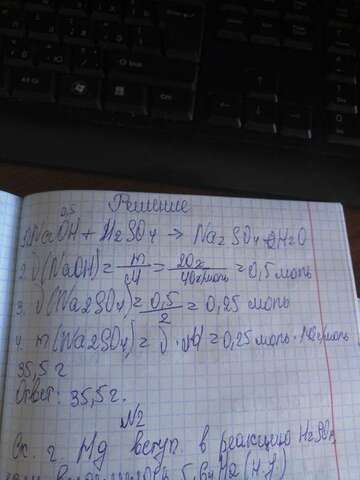 Решение
0,5
2NaOH + H2SO4 → Na2SO4 + 2H2O
2. ν(NaOH) = m/M = 20г/40г/моль = 0,5 моль
3. ν(Na2SO4) = 0,5/2 = 0,25 моль
4. m(Na2SO4) = ν · M = 0,25 моль ·
35,5 г
Ответ: 35,5 г.
N2
Ск. г. Mg вступ. в реакцию H2SO4